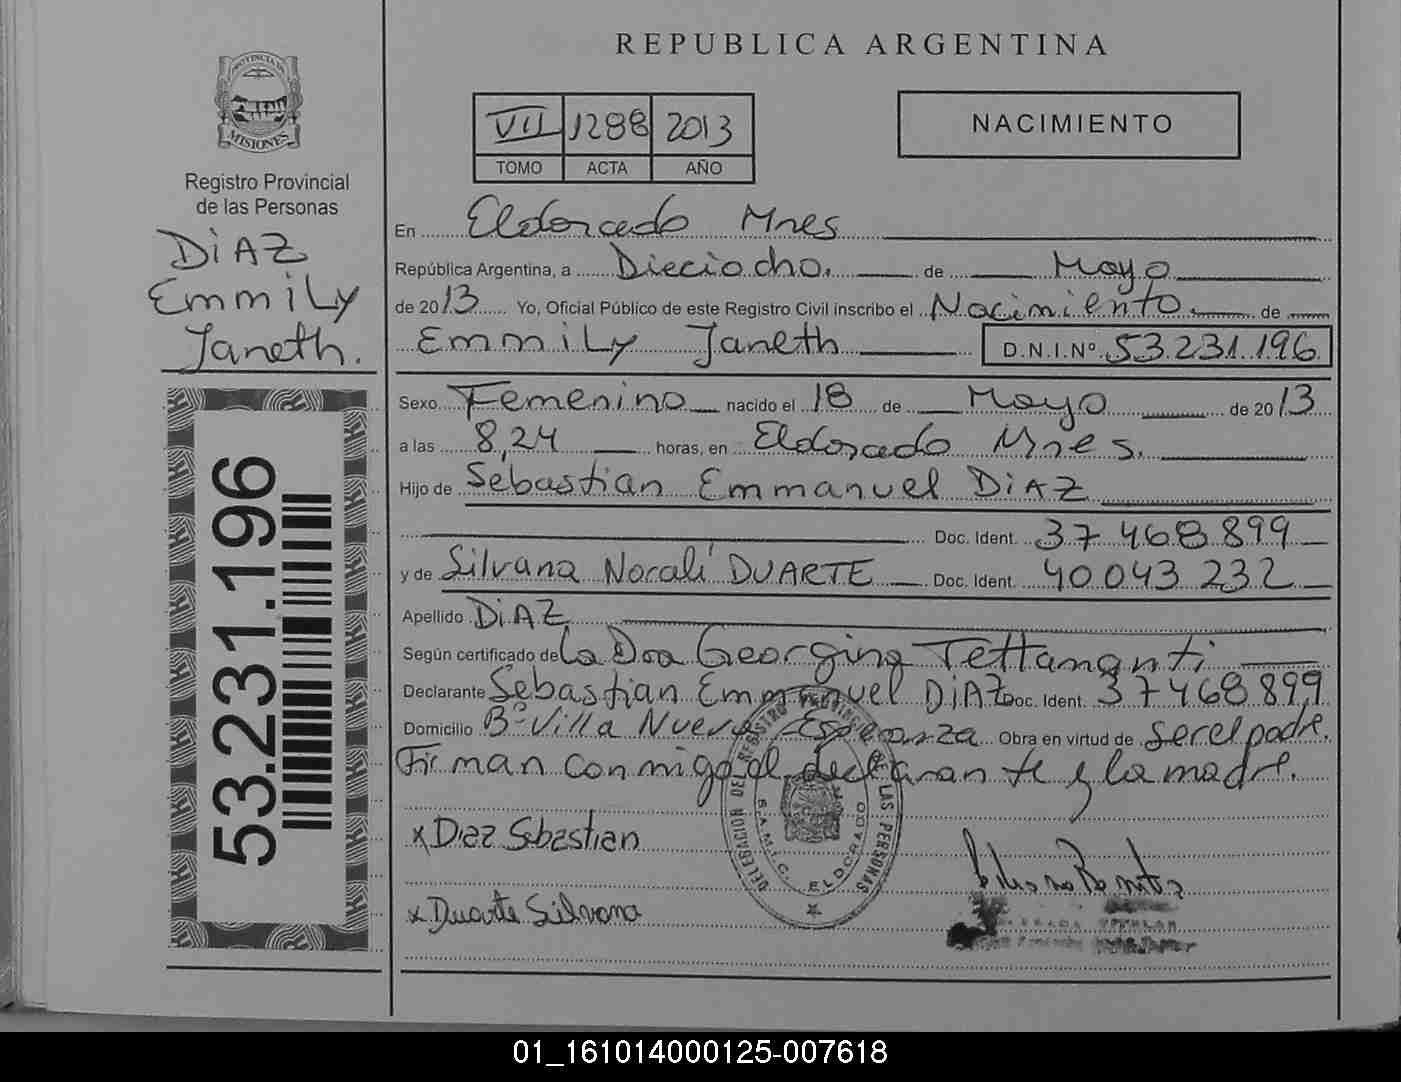 REPUBLICA ARGENTINA
PROVINCIA DE
MISIONES
Registro Provincial
de las Personas
DiAZ
EmmiLy
Janeth.
53.231.196
VII 1288 2013
TOMO ACTA AÑO
NACIMIENTO
En Eldorado Mnes
República Argentina, a Dieciocho. de Mayo
de 2013 Yo, Oficial Público de este Registro Civil inscribo el Nacimiento de
EmmiLy Janeth D.N.I.Nº 53.231.196
Sexo Femenino nacido el 18 de Mayo de 2013
a las 8,24 horas, en Eldorado Mnes.
Hijo de Sebastian Emmanuel DiAZ
Doc. Ident. 37 468 899
y de Silvana Norali DUARTE Doc. Ident. 40 043 232
Apellido DiAZ
Según certificado de La Dra Georgina Tettamanti
Declarante Sebastian Emmanuel DiAZ Doc. Ident. 37468899
Domicilio Bº Villa Nueva Esperanza Obra en virtud de ser el padre.
Firman conmigo el declarante y la madre.
x Diaz Sebastian
x Duarte Silvana
DELEGACION DEL REGISTRO PROVINCIAL DE LAS PERSONAS
S.A.M.I.C. ELDORADO
TITULAR
01_161014000125-007618